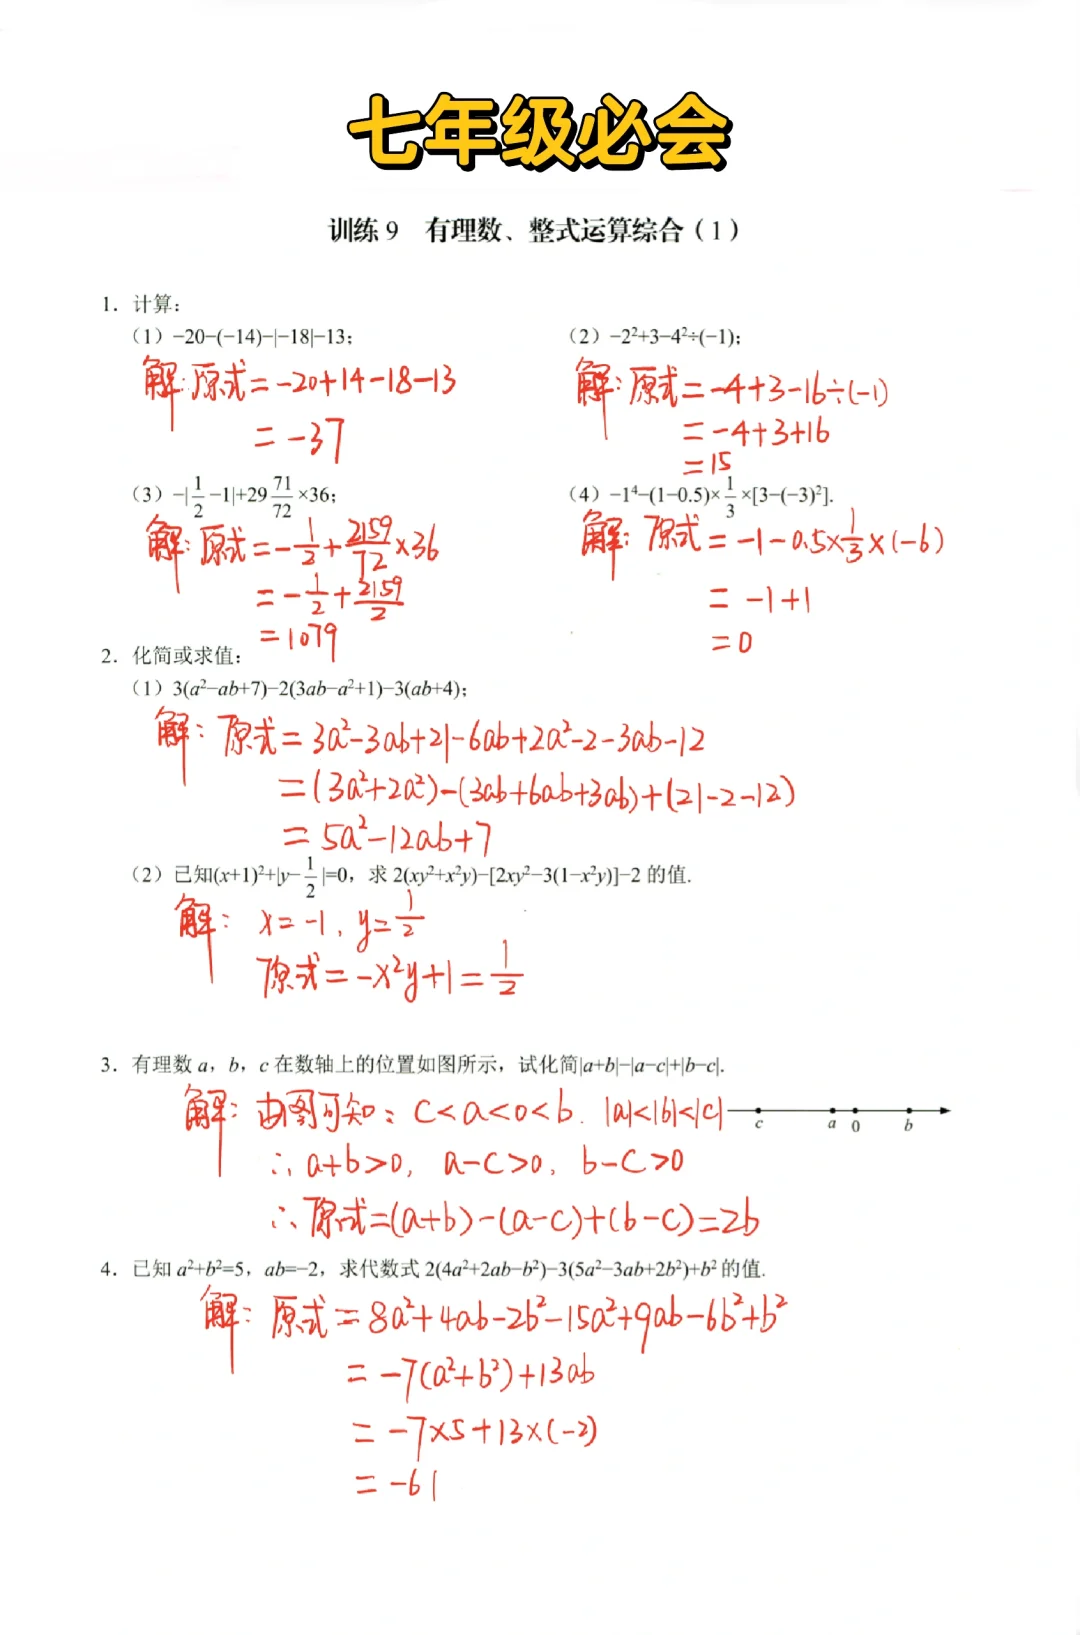 七年级必会
训练 9 有理数、整式运算综合（1）
1. 计算:
（1）−20−(−14)−|−18|−13; （2）−2²+3−4²÷(−1);
解:原式=−20+14−18−13
=−37
解:原式=−4+3−16÷(−1)
=−4+3+16
=15
（3）−|1/2−1|+29 71/72×36; （4）−1⁴−(1−0.5)×1/3×[3−(−3)²].
解:原式=−1/2+2159/72×36
=−1/2+2159/2
=1079
解:原式=−1−0.5×1/3×(−6)
=−1+1
=0
2. 化简或求值:
（1）3(a²−ab+7)−2(3ab−a²+1)−3(ab+4);
解:原式=3a²−3ab+21−6ab+2a²−2−3ab−12
=(3a²+2a²)−(3ab+6ab+3ab)+(21−2−12)
=5a²−12ab+7
（2）已知(x+1)²+|y−1/2|=0，求 2(xy²+x²y)−[2xy²−3(1−x²y)]−2 的值.
解: x=−1, y=1/2
原式=−x²y+1=1/2
3. 有理数 a，b，c 在数轴上的位置如图所示，试化简|a+b|−|a−c|+|b−c|.
解:由图可知: c<a<0<b. |a|<|b|<|c|
c a 0 b
∴a+b>0, a−c>0, b−c>0
∴原式=(a+b)−(a−c)+(b−c)=2b
4. 已知 a²+b²=5，ab=−2，求代数式 2(4a²+2ab−b²)−3(5a²−3ab+2b²)+b² 的值.
解:原式=8a²+4ab−2b²−15a²+9ab−6b²+b²
=−7(a²+b²)+13ab
=−7×5+13×(−2)
=−61